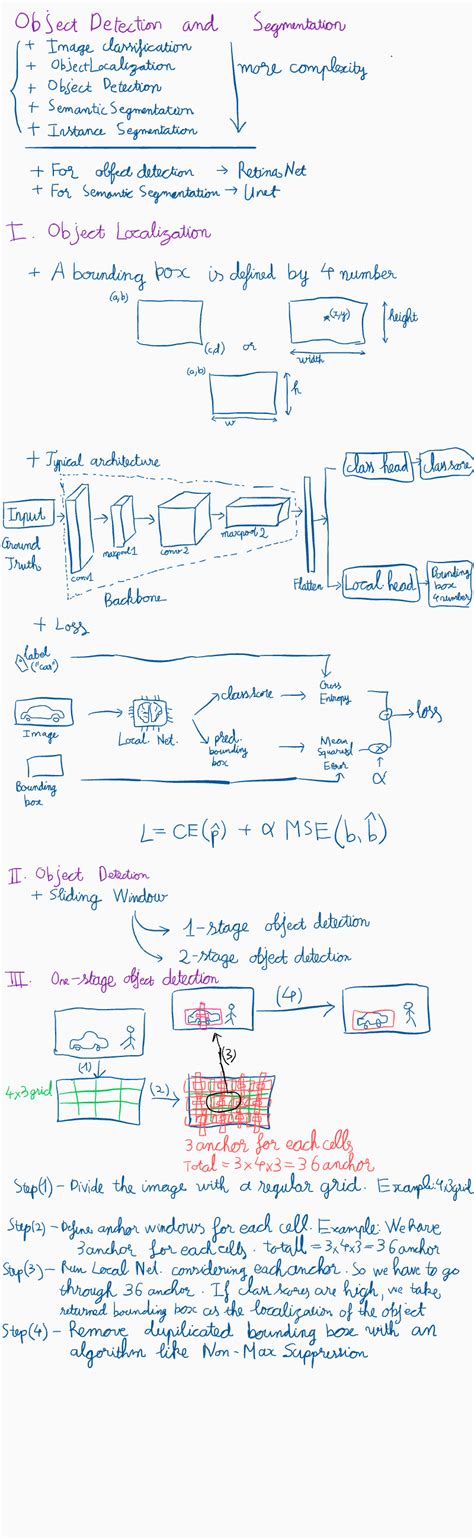 Object Detection and Segmentation
+ Image classification
+ Object Localization
+ Object Detection
+ Semantic Segmentation
+ Instance Segmentation
more complexity
+ For object detection → RetinaNet
+ For Semantic Segmentation → Unet
I. Object Localization
+ A bounding box is defined by 4 number
(a,b)
(c,d) or
(x,y)
height
width
(a,b)
h
w
+ Typical architecture
Input
Ground Truth
conv1
maxpool1
conv2
maxpool2
Backbone
Flatten
class head
class score
Local head
Bounding box 4 number
+ Loss
label ("car")
Image
Bounding box
Local. Net.
class score
pred. bounding box
Cross Entropy
Mean Squared Error
+
×
α
loss
L = CE(p̂) + α MSE(b, b̂)
II. Object Detection
+ Sliding Window
1-stage object detection
2-stage object detection
III. One-stage object detection
(4)
(1)
(3)
4x3 grid
(2)
3 anchor for each cells
Total = 3x4x3 = 36 anchor
Step(1) - Divide the image with a regular grid. Example: 4x3 grid
Step(2) - Define anchor windows for each cell. Example: We have
3 anchor for each cells. totall = 3x4x3 = 36 anchor
Step(3) - Run Local Net. considering each anchor. So we have to go
through 36 anchor. If class scores are high, we take
returned bounding box as the localization of the object
Step(4) - Remove duplicated bounding box with an
algorithm like Non-Max Suppression